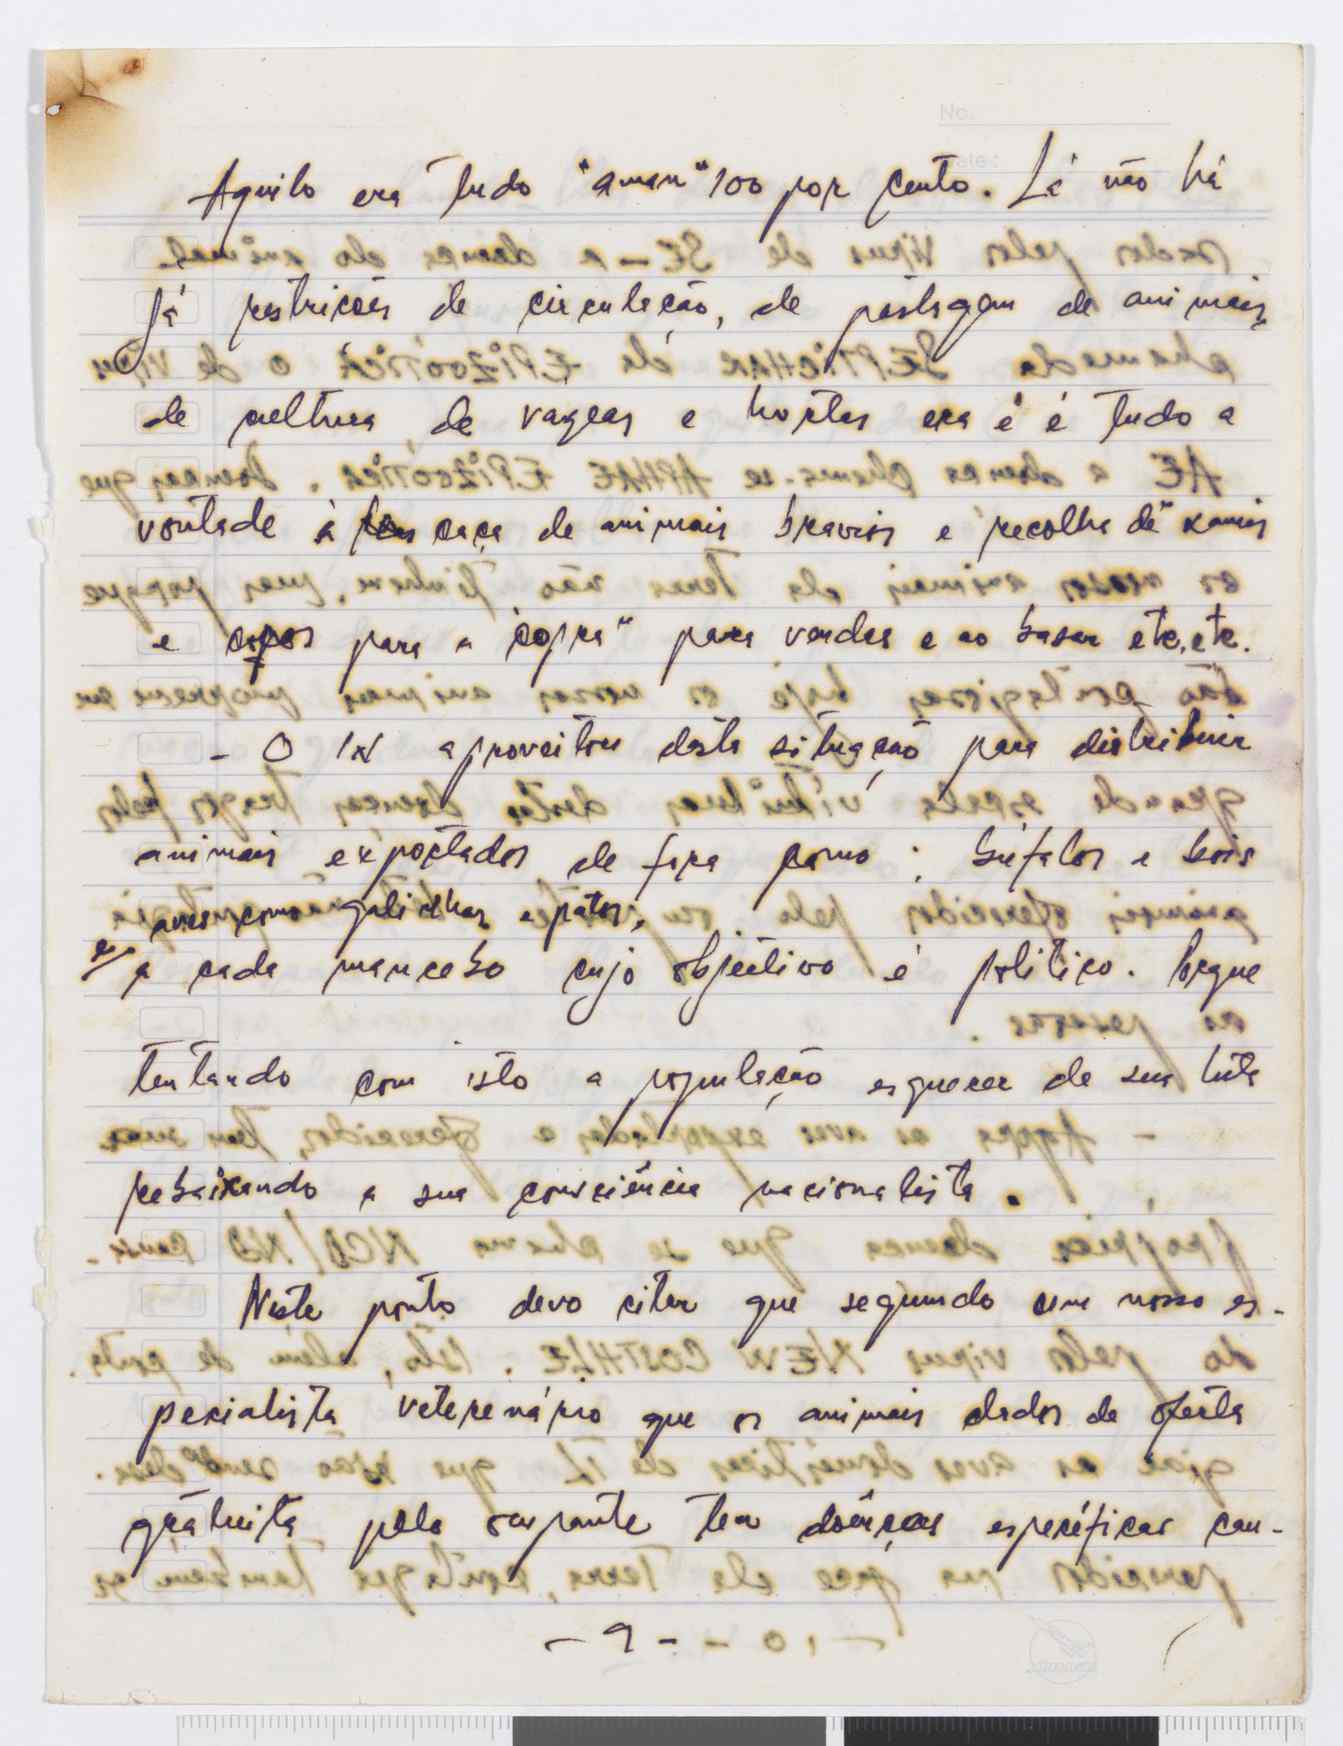 No.
Date:
Aquilo era tudo "aman" 100 por cento. Lá não há
já restrições de circulação, de pastagem de animais,
de cultura de vargeas e hortas era é é tudo a
vontade à caça de animais bravios e recolha de "kamis
e copos para a "copra" para vendas e ao basar etc, etc.
- O IN aproveitou desta situação para distribuir
animais expoctados de fora como: búfalos e bois
aves como galinhas e patos,
a cada mancebo cujo objectivo é politico. Porque
tentando com isto a população esquecer de sua luta
rebaixando a sua consciência nacionalista.
Neste ponto devo citar que segundo um nosso es-
pecialista veterenário que os animais dados de oferta
gratuita pelo ocupante tem doenças especificas cau-
- 9 -